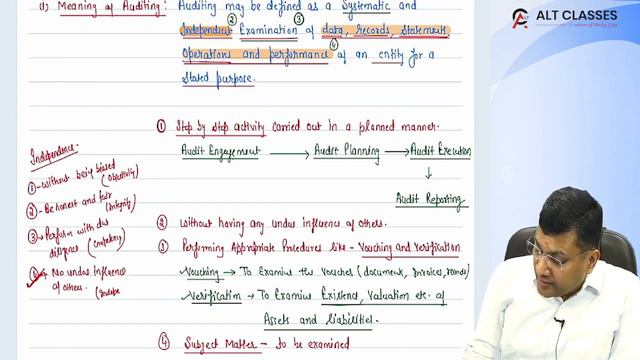 (1) Meaning of Auditing: Auditing may be defined as a Systematic and
Independent ② Examination ③ of data, records, Statements
Operations and performance ④ of an entity for a
Stated purpose.
① Step by step activity carried out in a planned manner.
Audit Engagement → Audit Planning → Audit Execution
↓
Audit Reporting
② Without having any undue influence of others.
③ Performing Appropriate Procedures like - Vouching and Verification
Vouching → To Examine the Voucher (document, Invoices, records)
Verification → To Examine Existence, Valuation etc. of
Assets and Liabilities.
④ Subject Matter - to be examined
Independence -
① - Without being biased
(Objectivity)
② - Be honest and fair
(integrity)
③ - Perform with due
diligence - (Competency)
④ - No undue Influence
of others.
ALT CLASSES